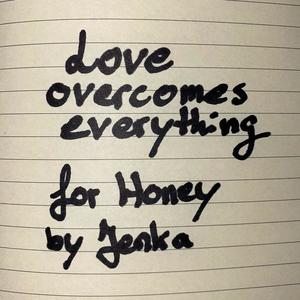 Love
overcomes
everything
for Honey
by Jenka